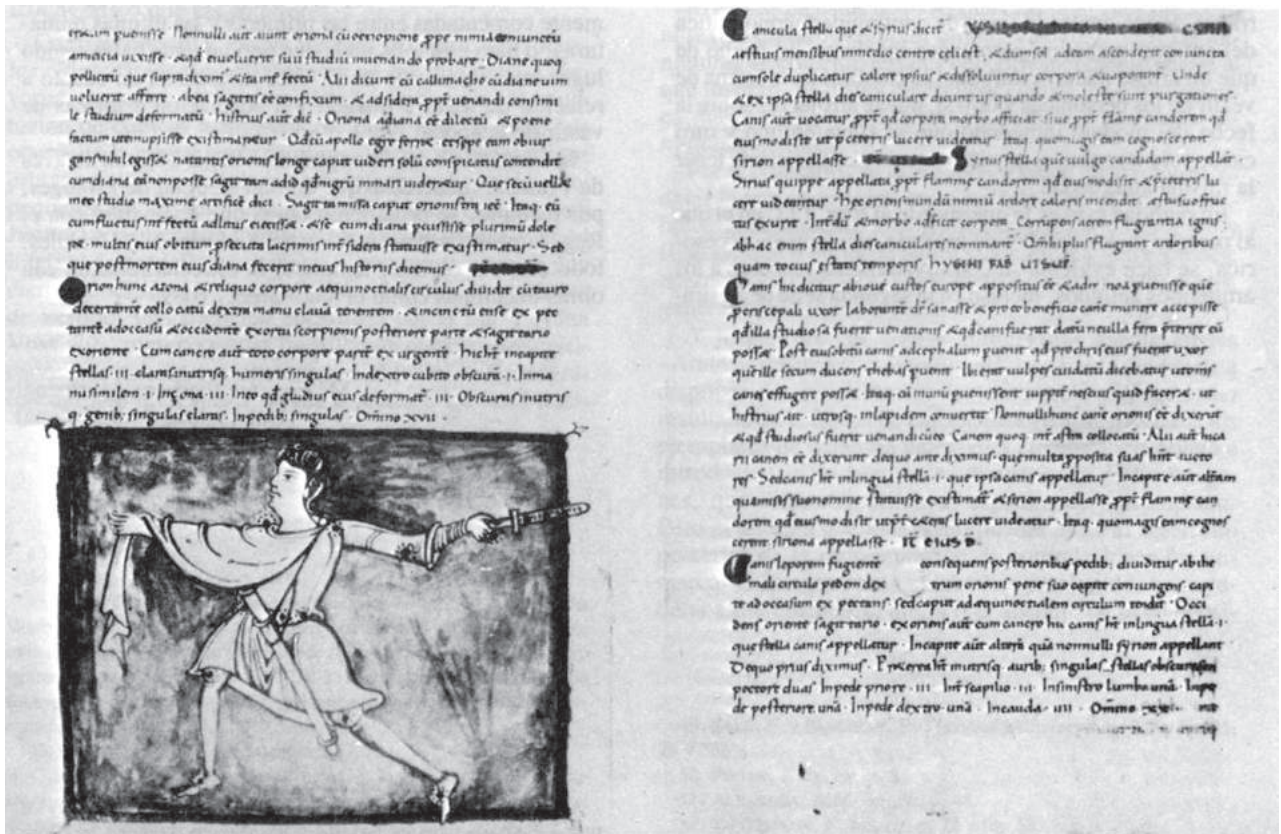 Nonnulli aut aiunt oriona cu oenopione ppe nimia coniunctu
amicicia uixisse · & qd ei uoluerit suu studiu in uenando probare · Diane quoq
pollicitu que supra dixim & ita interfectu · Alii dicunt cu callimacho cu diane uim
uoluerit afferre · ab ea sagittis ee confixum · & ad sidera ppt uenandi consimi
le studium deformatu · histrus aut dic · Oriona a diana ee dilectu & poene
factum ut ei nupsisse existimaretur · Qd cu apollo egre ferret et sepe eum obiur
gans nihil egiss& natantis orionis longe caput uideri solu conspicatus contendit
cum diana ea non posse sagittam adid qd nigru in mari uider&ur · Que se cu uell&
in eo studio maxime artifice dici · Sagitta missa caput orionis · Itaq eu
cum fluctus int fectu ad litus eiecisset · & se eum diana pcussisse plurimu dole
ret multis eius obitum psecuta lacrimis int sidera statuisse existimatur · Sed
que post mortem eius diana fecerit in eius historiis dicemus
Orion hunc a zona & reliquo corpore aequinoctialis circulus diuidit cu tauro
decertante collocatu dextra manu claua tenentem · & incinctu ense ex pec
tante ad occasu & occidente exortu scorpionis posteriore parte & sagittario
exoriente · Cum cancro aut toto corpore parte ex urgente · hic ht in capite
stellas · III · claras in utrisq humeris singulas · In dextro cubito obscura · I · In ma
nu similem · I · In zona · III · In eo qd gladius eius deformat · III · Obscuras in utris
q · genib; singulas claras · In pedib; singulas · Omino XXVII ·
Canicula stella que & syrius dicit
aestiuis mensibus in medio centro celi est · & dum sol ad eam ascenderit coniuncta
cum sole duplicatur calore ipsius & dissoluuntur corpora & uaporant · Unde
& ex ipsa stella dies caniculares dicuntur quando & moleste sunt purgationes ·
Canis aut uocatur ppt qd corpora morbo afficiat siue ppt flamme candorem qd
eius modi sit ut p ceteris lucere uideatur · Itaq quo magis eam cognoscerent
sirion appellasse Syrius stella que uulgo candidam appellat
Sirius quippe appellata ppt flamme candorem qd eius modi sit & p ceteris lu
cere uideantur · hec oriens mundu nimiu ardore caloris incendit · & estu suo fruc
tus exurit · Interdu & morbo adficit corpora · Corrupens aerem flagrantia ignis ·
ab hac enim stella dies caniculares nominant · Qm his plus flagrant ardoribus
quam tocius estatis temporis · hYGINI FAB UTSUP
Canis hic dicitur ab ioue custos europe appositus ee & ad min noa puenisse que
peris cepali uxor laborante dr sanasse & pro eo beneficio cane munere accepisse ·
qd illa studiosa fuerit uenationis & qd cani fuerat datu ne ulla fera pterire eu
poss& · Post eius obitu canis ad cephalum puenit · qd prochris eius fuerat uxor
que ille secum ducens thebas puenit · Ibi erat uulpes cui datu dicebatur ut omis
canes effugere poss& · Itaq cu in unu puenissent iuppit nescius quid facer& · ut
histrius ait · utrosq in lapidem conuertit · Nonnulli hunc cane orionis ee dixerut
& qd studiosus fuerit uenandi cu eo Canem quoq int astra collocatu · Alii aut hica
rii canem ee dixerunt de quo ante diximus · que multa pposita suas hnt aucto
res · Sed canis ht in lingua stella · I · que ipsa canis appellatur · In capite aut altam
quam isis suo nomine statuisse existimat & sirion appellasse ppt flamme can
dorem qd eius modi sit ut pt ceteras lucere uideatur · Itaq quo magis eam cognos
cerent siriona appellasse ·
Canis leporem fugiente consequens posterioribus pedib; diuiditur ab hie
mali circulo pedem dex trum orionis pene suo capite coniungens capi
te ad occasum ex pectans · sed caput ad aequinoctialem circulum tendit · Occi
dens oriente sagittario · exoriens aut cum cancro hu canis ht in lingua stella · I ·
que stella canis appellatur · In capite aut altera qua nonnulli syrion appellant
De quo prius diximus · Preterea ht in utrisq aurib; singulas stellas obscuras
pectore duas In pede priore · III · Int scapilio · III · In sinistro lumbo una · In pe
de posteriore una · In pede dextro una · In cauda · IIII · Omino XX